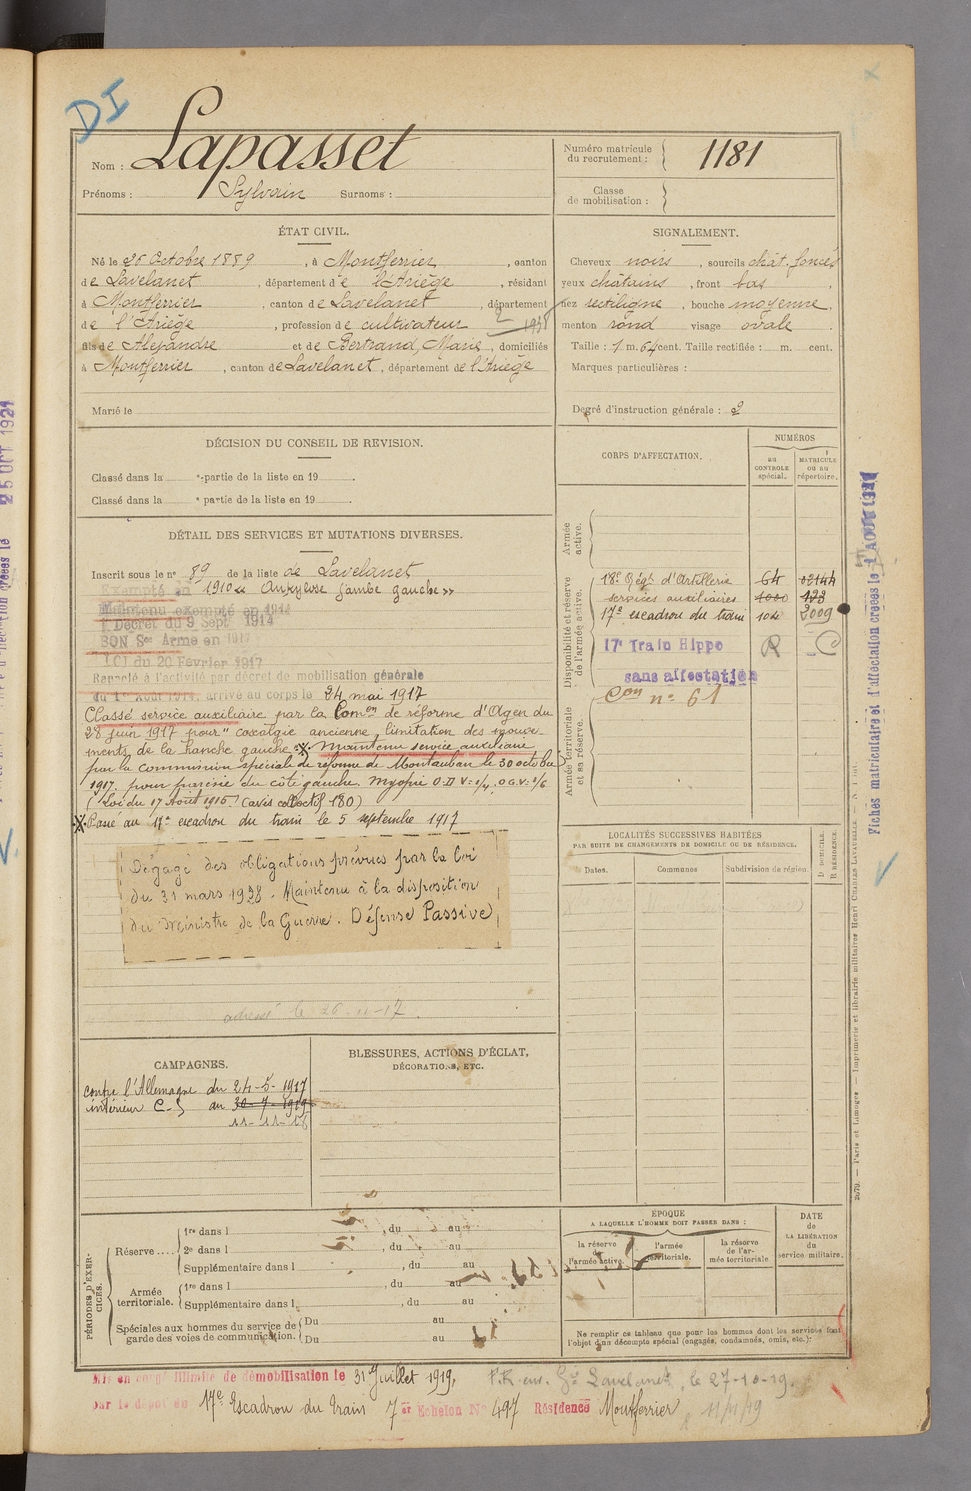 DI
Nom : Lapasset
Prénoms : Sylvain Surnoms :
Numéro matricule du recrutement : 1181
Classe de mobilisation :
ÉTAT CIVIL.
Né le 26 Octobre 1889, à Montferrier, canton
de Lavelanet, département de l'Ariège, résidant
à Montferrier, canton de Lavelanet, département
de l'Ariège, profession de cultivateur
fils de Alexandre et de Bertrand, Marie, domiciliés
à Montferrier, canton de Lavelanet, département de l'Ariège
Marié le
SIGNALEMENT.
Cheveux noirs, sourcils chât. foncés
yeux châtains, front bas,
nez rectiligne, bouche moyenne,
menton rond visage ovale.
Taille : 1 m. 64 cent. Taille rectifiée : m. cent.
Marques particulières :
Degré d'instruction générale : 2
DÉCISION DU CONSEIL DE REVISION.
Classé dans la e partie de la liste en 19 .
Classé dans la e partie de la liste en 19 .
DÉTAIL DES SERVICES ET MUTATIONS DIVERSES.
Inscrit sous le n° 89 de la liste de Lavelanet
Exempté en 1910 « Ankylose jambe gauche »
Maintenu exempté en 1914
Décret du 9 Sept 1914
BON Sce Armé en 1917
LOI du 20 Février 1917
Rappelé à l'activité par décret de mobilisation générale
du 1er Août 1914, arrivé au corps le 24 mai 1917
Classé service auxiliaire par la Comon de réforme d'Agen du
28 juin 1917 pour "coxalgie ancienne, limitation des mouve-
ments de la hanche gauche". Maintenu service auxiliaire
par la commission spéciale de réforme de Montauban le 30 octobre
1917. pour parésie du côté gauche. Myopie O.D V: 1/4, O.G.V: 1/6
(Loi du 17 Août 1915) (avis collectif 180)
Passé au 17e escadron du train le 5 septembre 1917
Dégagé des obligations prévues par la loi
du 31 mars 1928. Maintenu à la disposition
du Ministre de la Guerre. Défense Passive
adressé le 26-11-17.
CORPS D'AFFECTATION.
NUMÉROS
au CONTROLE spécial.
MATRICULE ou au répertoire.
Armée active.
Disponibilité et réserve de l'armée active.
18e Régt d'Artillerie 64 02144
services auxiliaires 1000 173
17e escadron du train 104 2009
17e Train Hippo R C
sans affectation
Armée territoriale et sa réserve.
Con n° 61
LOCALITÉS SUCCESSIVES HABITÉES
PAR SUITE DE CHANGEMENTS DE DOMICILE OU DE RÉSIDENCE.
Dates. Communes Subdivision de région.
D DOMICILE. R RÉSIDENCE.
CAMPAGNES.
contre l'Allemagne du 24-5-1917
intérieur C-S au 30-7-1919
11-11-18
BLESSURES, ACTIONS D'ÉCLAT,
DÉCORATIONS, ETC.
PÉRIODES D'EXERCICES.
Réserve.... 1re dans l , du au
2e dans l , du au
Supplémentaire dans l , du au
Armée territoriale. 1re dans l , du au
Supplémentaire dans l , du au
Spéciales aux hommes du service de garde des voies de communication. Du au
Du au
ÉPOQUE
A LAQUELLE L'HOMME DOIT PASSER DANS :
la réserve de l'armée active.
l'armée territoriale.
la réserve de l'armée territoriale
DATE de LA LIBÉRATION du service militaire.
Ne remplir ce tableau que pour les hommes dont les services font
l'objet d'un décompte spécial (engagés, condamnés, omis, etc.):
Mis en congé illimité de démobilisation le 31 Juillet 1919,
par le dépôt du 17e Escadron du train 7er Echelon N° 497 Résidence Montferrier
le 27-10-19.
Fiches matriculaire et d'affectation créées le AOUT
2679. — Paris et Limoges — Imprimerie et librairie militaires Henri CHARLES-LAVAUZELLE.
25 OCT 1921